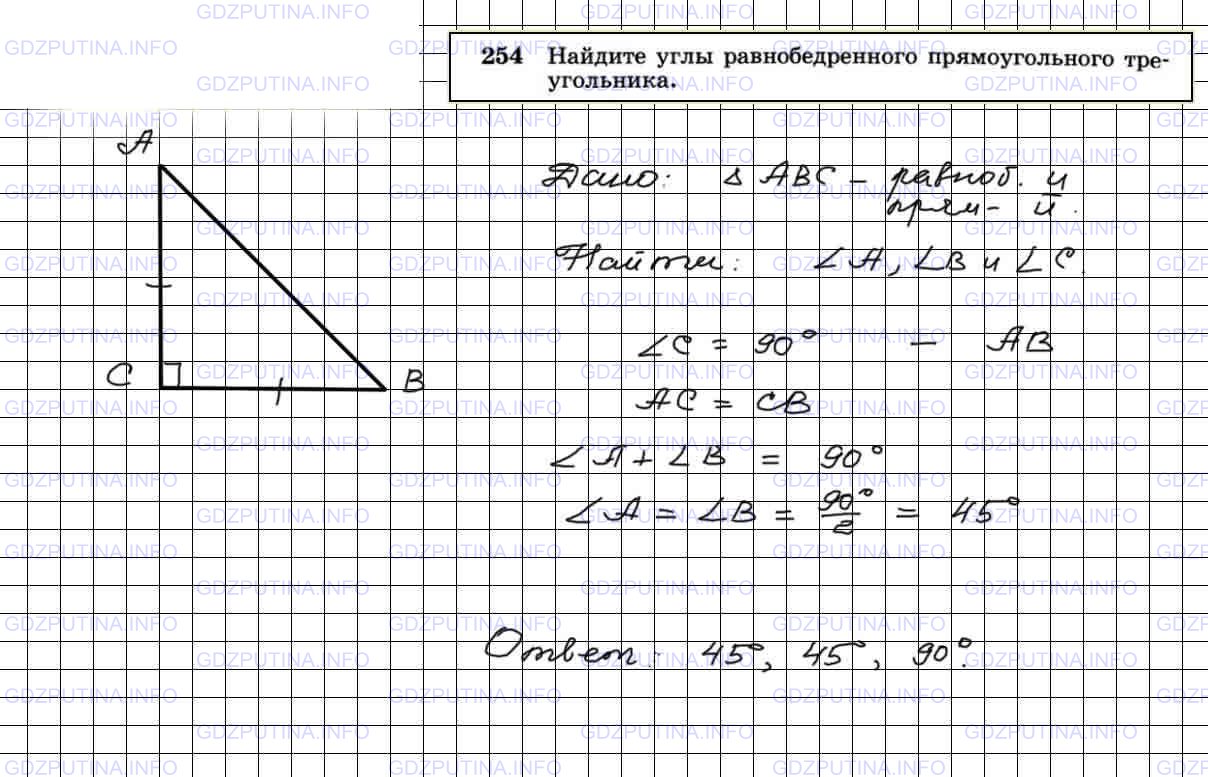 254 Найдите углы равнобедренного прямоугольного тре-
угольника.
A
C
B
Дано: △ ABC – равноб. и
прям-й.
Найти: ∠A, ∠B и ∠C.
∠C = 90° – AB
AC = CB
∠A + ∠B = 90°
∠A = ∠B = 90°/2 = 45°
Ответ: 45°, 45°, 90°.
GDZPUTINA.INFO